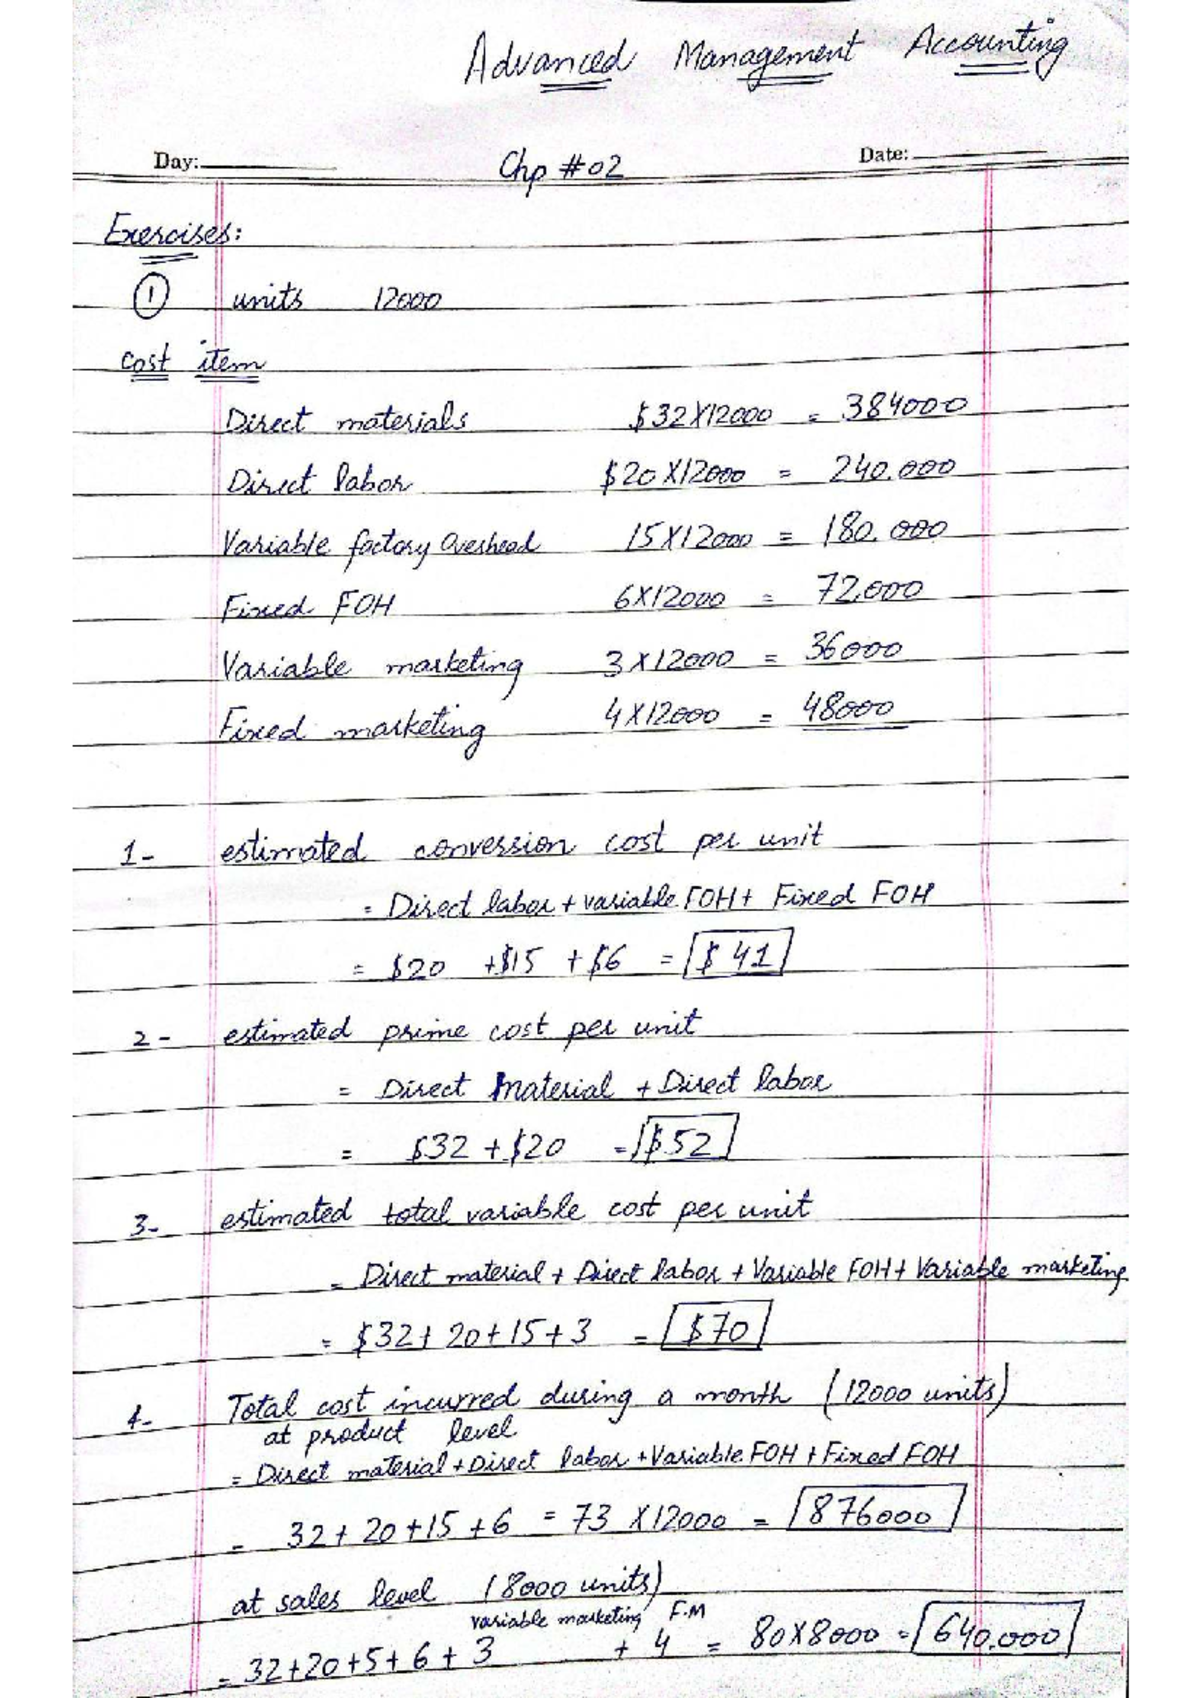 Advanced Management Accounting
Day: Chp #02 Date:
Exercises:
1 units 12000
Cost item
Direct materials $32X12000 = 384000
Direct labor $20X12000 = 240.000
Variable factory overhead 15X12000 = 180.000
Fixed FOH 6X12000 = 72,000
Variable marketing 3X12000 = 36000
Fixed marketing 4X12000 = 48000
1- estimated conversion cost per unit
= Direct labor + variable FOH + Fixed FOH
= $20 +$15 + $6 = $41
2- estimated prime cost per unit
= Direct Material + Direct labor
= $32 + $20 = $52
3- estimated total variable cost per unit
= Direct material + Direct labor + Variable FOH + Variable marketing
= $32+ 20+15+3 = $70
4- Total cost incurred during a month (12000 units)
at product level
= Direct material + Direct labor + Variable FOH + Fixed FOH
= 32+ 20+15 +6 = 73 X12000 = 876000
at sales level (8000 units)
variable marketing F.M
= 32+20+5+ 6+ 3 + 4 = 80X8000 = 640.000